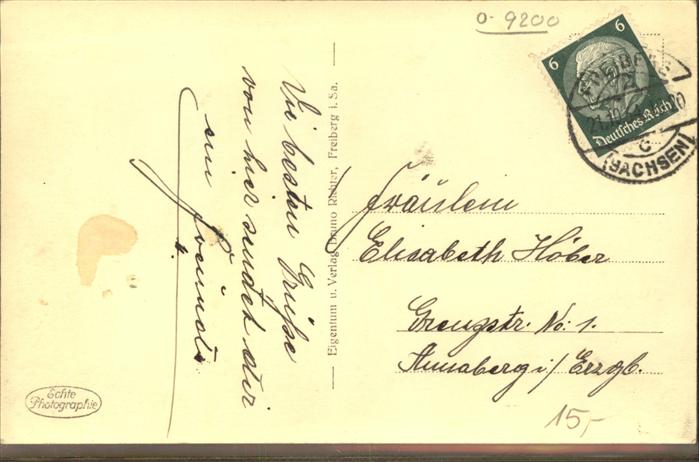 o- 9200
6 6
FREIBERG
Deutsches Reich
C
(SACHSEN)
Die besten Grüße
von hier sendet dir
Eigentum u. Verlag Bruno Richter, Freiberg i. Sa.
Fräulein
Elisabeth Höber
Grenzstr. No: 1.
Annaberg i/ Erzgb.
15,-
Echte
Photographie